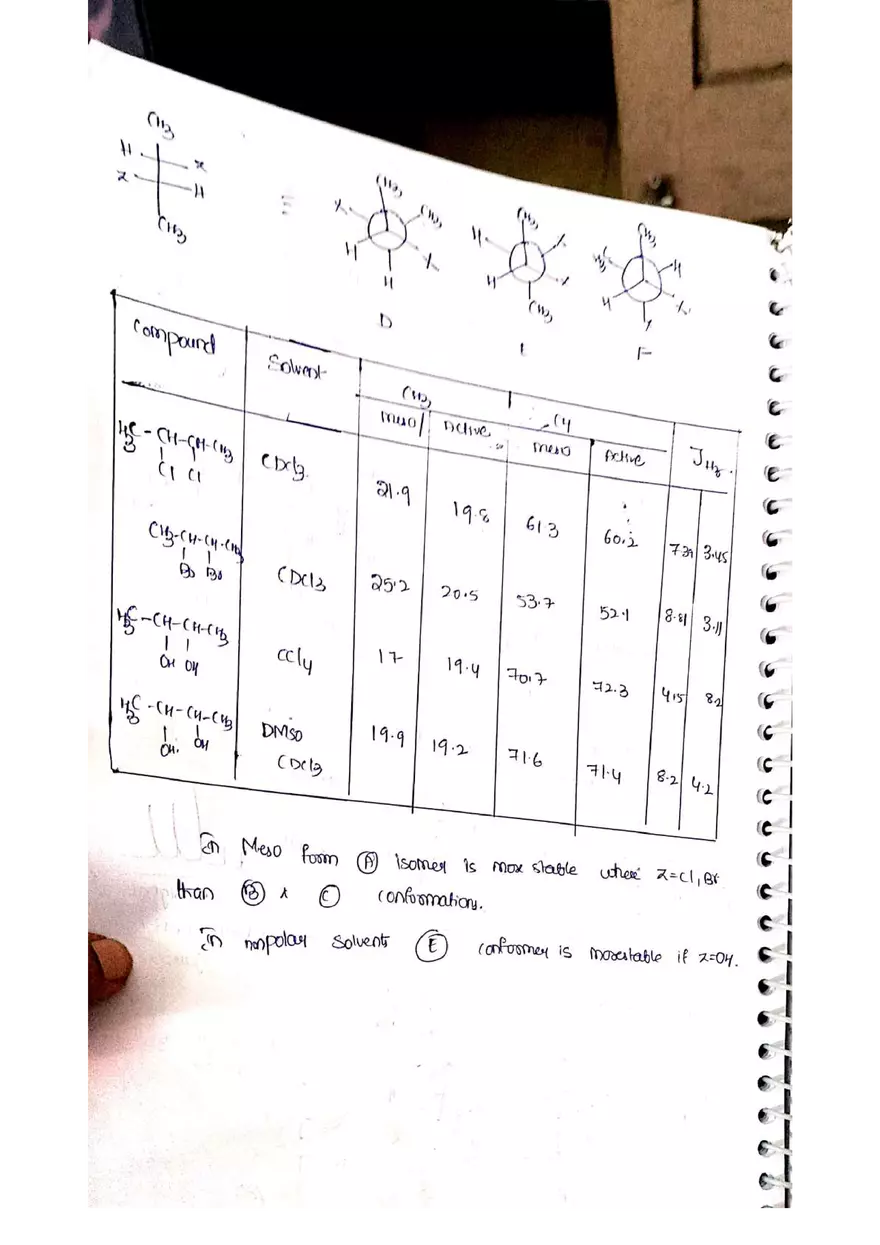 CH3
H x
x H
CH3
≡
CH3
x CH3
H x
H
D
CH3
H x
H x
CH3
CH3
H3C H
H x
F
Compound Solvent CH3 CH JHz.
Meso Active Meso Active
H3C-CH-CH-CH3
Cl Cl
CDCl3 21.9 19.8 61.3 60.2 3.45
CH3-CH-CH-CH3
Br Br
CDCl3 25.2 20.5 53.7 52.1 8.81 3.11
H3C-CH-CH-CH3
OH OH
CCl4 17 19.4 70.7 72.3 4.15 8.2
H3C-CH-CH-CH3
OH. OH
DMSO
CDCl3
19.9 19.2 71.6 71.4 8.2 4.2
In Meso form (A) isomer is mox stable where x=Cl, Br
than (B) & (C) conformations.
In nonpolar solvents (E) conformer is morestable if x=OH.